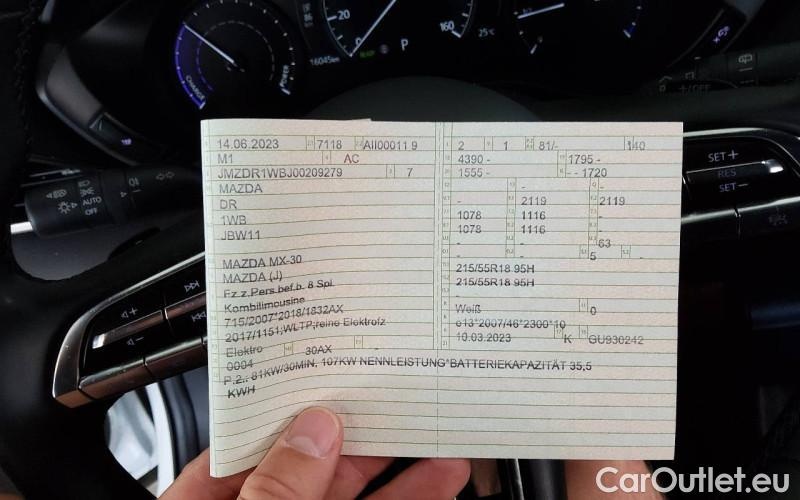 20
160
P
READY
25°C
16045km
CHARGE
POWER
OFF
AUTO
OFF
SET+
RES
SET−
14.06.2023 7118 AII00011 9 2 1 81/- 140
M1 AC 4390 - 1795 -
JMZDR1WBJ00209279 7 1555 - - - 1720
MAZDA - -
DR - 2119 2119
1WB 1078 1116 -
JBW11 1078 1116 -
- - 63
MAZDA MX-30 - - 5 -
MAZDA (J) 215/55R18 95H
Fz.z.Pers.bef.b. 8 Spl. 215/55R18 95H
Kombilimousine -
715/2007*2018/1832AX Weiß 0
2017/1151;WLTP;reine Elektrofz e13*2007/46*2300*10
Elektro 30AX - 10.03.2023 K GU930242
0004
P.2.: 81KW/30MIN, 107KW NENNLEISTUNG*BATTERIEKAPAZITÄT 35,5
KWH
CarOutlet.eu